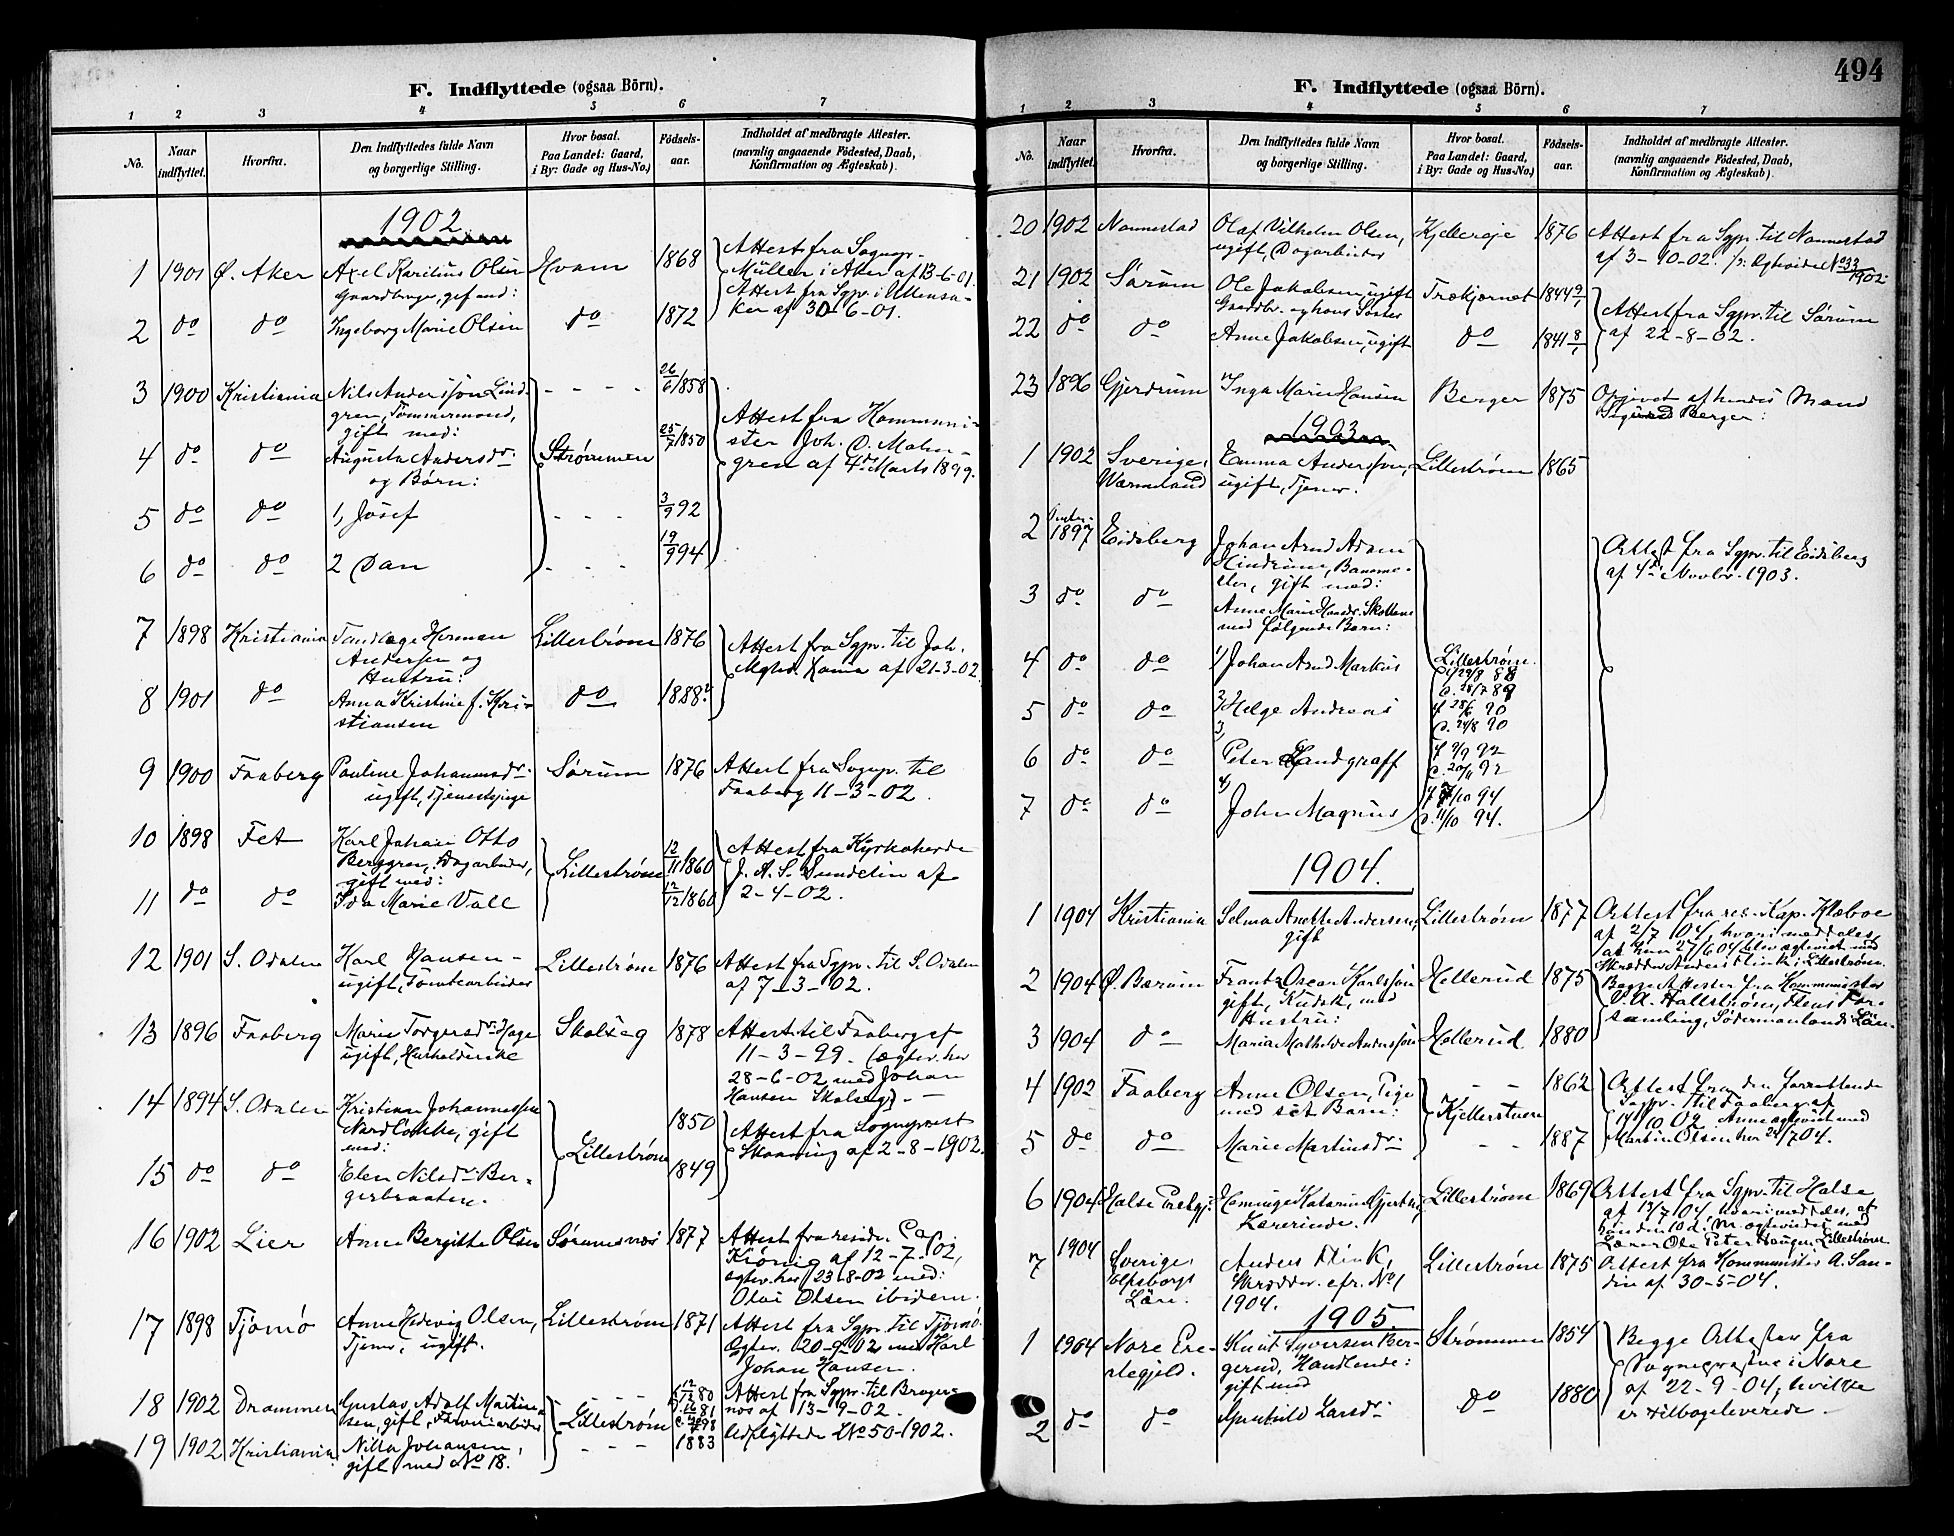 F. Indflyttede (ogsaa Börn).
1 2 3 4 5 6 7
No.
Naar indflyttet.
Hvorfra.
Den Indflyttedes fulde Navn
og borgerlige Stilling.
Hvor bosat.
Paa Landet: Gaard,
i By: Gade og Hus-No.)
Födsels-
aar.
Indholdet af medbragte Attester.
(navnlig angaaende Födested, Daab,
Konfirmation og Ægteskab).
1902
1 1901 Ø. Aker Axel Olsen Hvam 1868 Attest fra Sognepr.
Gaardbruger, gift med: Müller i Aker af 13-6-01.
2 do do Ingeborg Marie Olsen do 1872 Attest fra Sgpr. i Ullensa-
ker af 30-6-01.
3 1900 Kristiania Nils Andersson Lind- - - - - 26/6 1858
gren, Tømmermand,
gift med: Attest fra Kommuni-
4 do do Augusta Andersdr. Strømmen 25/7 1850 ster Joh. O. Malm-
og Børn: gren af 4de Marts 1899.
5 do do 1, Josef - - - 3/9 92
6 do do 2 Dan - - - 19/9 94
7 1898 Kristiania Tandlæge Herman Lillestrøm 1876 Attest fra Sgpr. til Joh.
Andersen og
Hustru: af 21-3-02.
8 1901 do Anna Kristine f. Kri- do 1888
stiansen
9 1900 Faaberg Pauline Johannesdr. Sørum 1876 Attest fra Sognepr. til
ugift, Tjenestepige Faaberg 11-3-02.
10 1898 Fet Karl Johan Otto Lillestrøm 12/11 1860 Attest fra Kyrkoherde
Berggren, Dagarbeider, J. A. S. Sundelin af
gift med: 2-4-02.
11 do do Ida Marie Vall 12/12 1860
12 1901 S. Odalen Karl Hansen Lillestrøm 1876 Attest fra Sgpr. til S. Odalen
ugift, Tomtearbeider af 7-3-02.
13 1896 Faaberg Marie Torgersdr. Hage Skolseg 1878 Attest til Faaberg af
ugift, Husholderske 11-3-99. (ægtev. her
28-6-02 med Johan
Hansen Skolseg) -
14 1894 S. Odalen Kristian Johannessen Lillestrøm 1850 Attest fra Sogneprest
gift
med: af 2-8-1902.
15 do do Elen Nilsdr. Ber- 1849
gersbraaten.
16 1902 Lier Anne Bergitte Olsen Sørumsnes 1877 Attest fra reside. Cap.
Krönig af 12-7-02,
ægtev. her 23-8-02 med:
Olai Olsen ibidem.
17 1898 Tjømø Anne Hedevig Olsen, Lillestrøm 1871 Attest fra Sgpr. til Tjømö.
Tjener, ugift. Ægtev. 20-9-02 med Karl
Johan Hansen.
18 1902 Drammen Gustav Adolf Martin- Lillestrøm Attest fra Sgpr. til Brager-
sen, gift, Farveriarbeider nes af 13-9-02.
19 1902 Kristiania Nilla Johansen, - - - 1883 Udflyttede No 50-1902.
gift med No 18.
494
F. Indflyttede (ogsaa Börn).
1 2 3 4 5 6 7
No.
Naar indflyttet.
Hvorfra.
Den Indflyttedes fulde Navn
og borgerlige Stilling.
Hvor bosat.
Paa Landet: Gaard,
i By: Gade og Hus-No.)
Födsels-
aar.
Indholdet af medbragte Attester.
(navnlig angaaende Födested, Daab,
Konfirmation og Ægteskab).
20 1902 Nannestad Olaf Vilhelm Olsen, 1876 Attest fra Sgpr. til Nannestad
ugift, Dagarbeider af 3-10-02. No 33 1902.
21 1902 Sørum Ole Jakobsen, ugift Trækjærnet 1844 9/1
Gaardbr. og hans Søster Attest fra Sgpr. til Sørum
22 do do Anne Jakobsen, ugift do 1841 8/1 af 22-8-02.
23 1896 Gjerdrum Inga Marie Hansen Berger 1875 Opgivet af hendes Mand
Sigurd Berger:
1903.
1 1902 Sverige, Emma Andersson, Lillestrøm 1865
Wærmeland ugift, Tjener.
2 1897 Eidsberg Johan Arnd Adam Attest fra Sgpr. til Eidsberg
gift med: af 4de Novbr. 1903.
3 do do Anne Marie
med følgende Børn:
4 do do 1) Johan Arnd Markus Lillestrøm.
5 do do 2, Helge Andreas
6 do do 3, Peter Landgraff
7 do do 4) John Magnus
1904.
1 1904 Kristiania Selma Anette Andersen, Lillestrøm 1877 Attest fra res. Kap. Klæboe
gift af 2/7 04, hvori meddeles,
at hun 27/6 04 blev ægteviet med
Skrædder Anders Flink i Lillestrøm.
2 1904 Ø. Bærum Frants Oscar Karlsson Hellerud 1875 Begge Attester fra Kommunister
gift, Kudsk, med V. A. Hallstrøm, Flens For-
Hustru: samling, Södermanlands Län.
3 1904 do Maria Mathilde Andersson Hellerud 1880
4 1902 Faaberg Anne Olsen, Pige - - 1862 Attest fra den forrettende
med sit Barn: Kjellerstuen Sognpr. til Faaberg af
14/10 02. Anne ægteviet med
5 do do Marie Martinsdr. - - 1887 Martin Olsen her 04.
6 1904 Halse Prestgj. Lillestrøm 1869 Attest fra Sgpr. til Halse
Lærerinde. af 13/7 04, hvori meddeles, at
ægteviedes med
Lærer Ole Peter Haugen, Lillestrøm.
7 1904 Sverige, Anders Flink, Lillestrøm 1875 Attest fra Kommunister A. San-
Elfsborgs Skrædder. cfr. No 1 din af 30-5-04.
Län. 1904.
1905.
1 1904 Nore Pre- Knut Syversen Ber- Strømmen 1854 Begge Attester fra
stegjeld. gerud, Handlende: Sognepresten i Nore
gift med af 22-9-04, hvilke
2 do do Gunhild Larsdr. do 1880 er tilbageleverede.